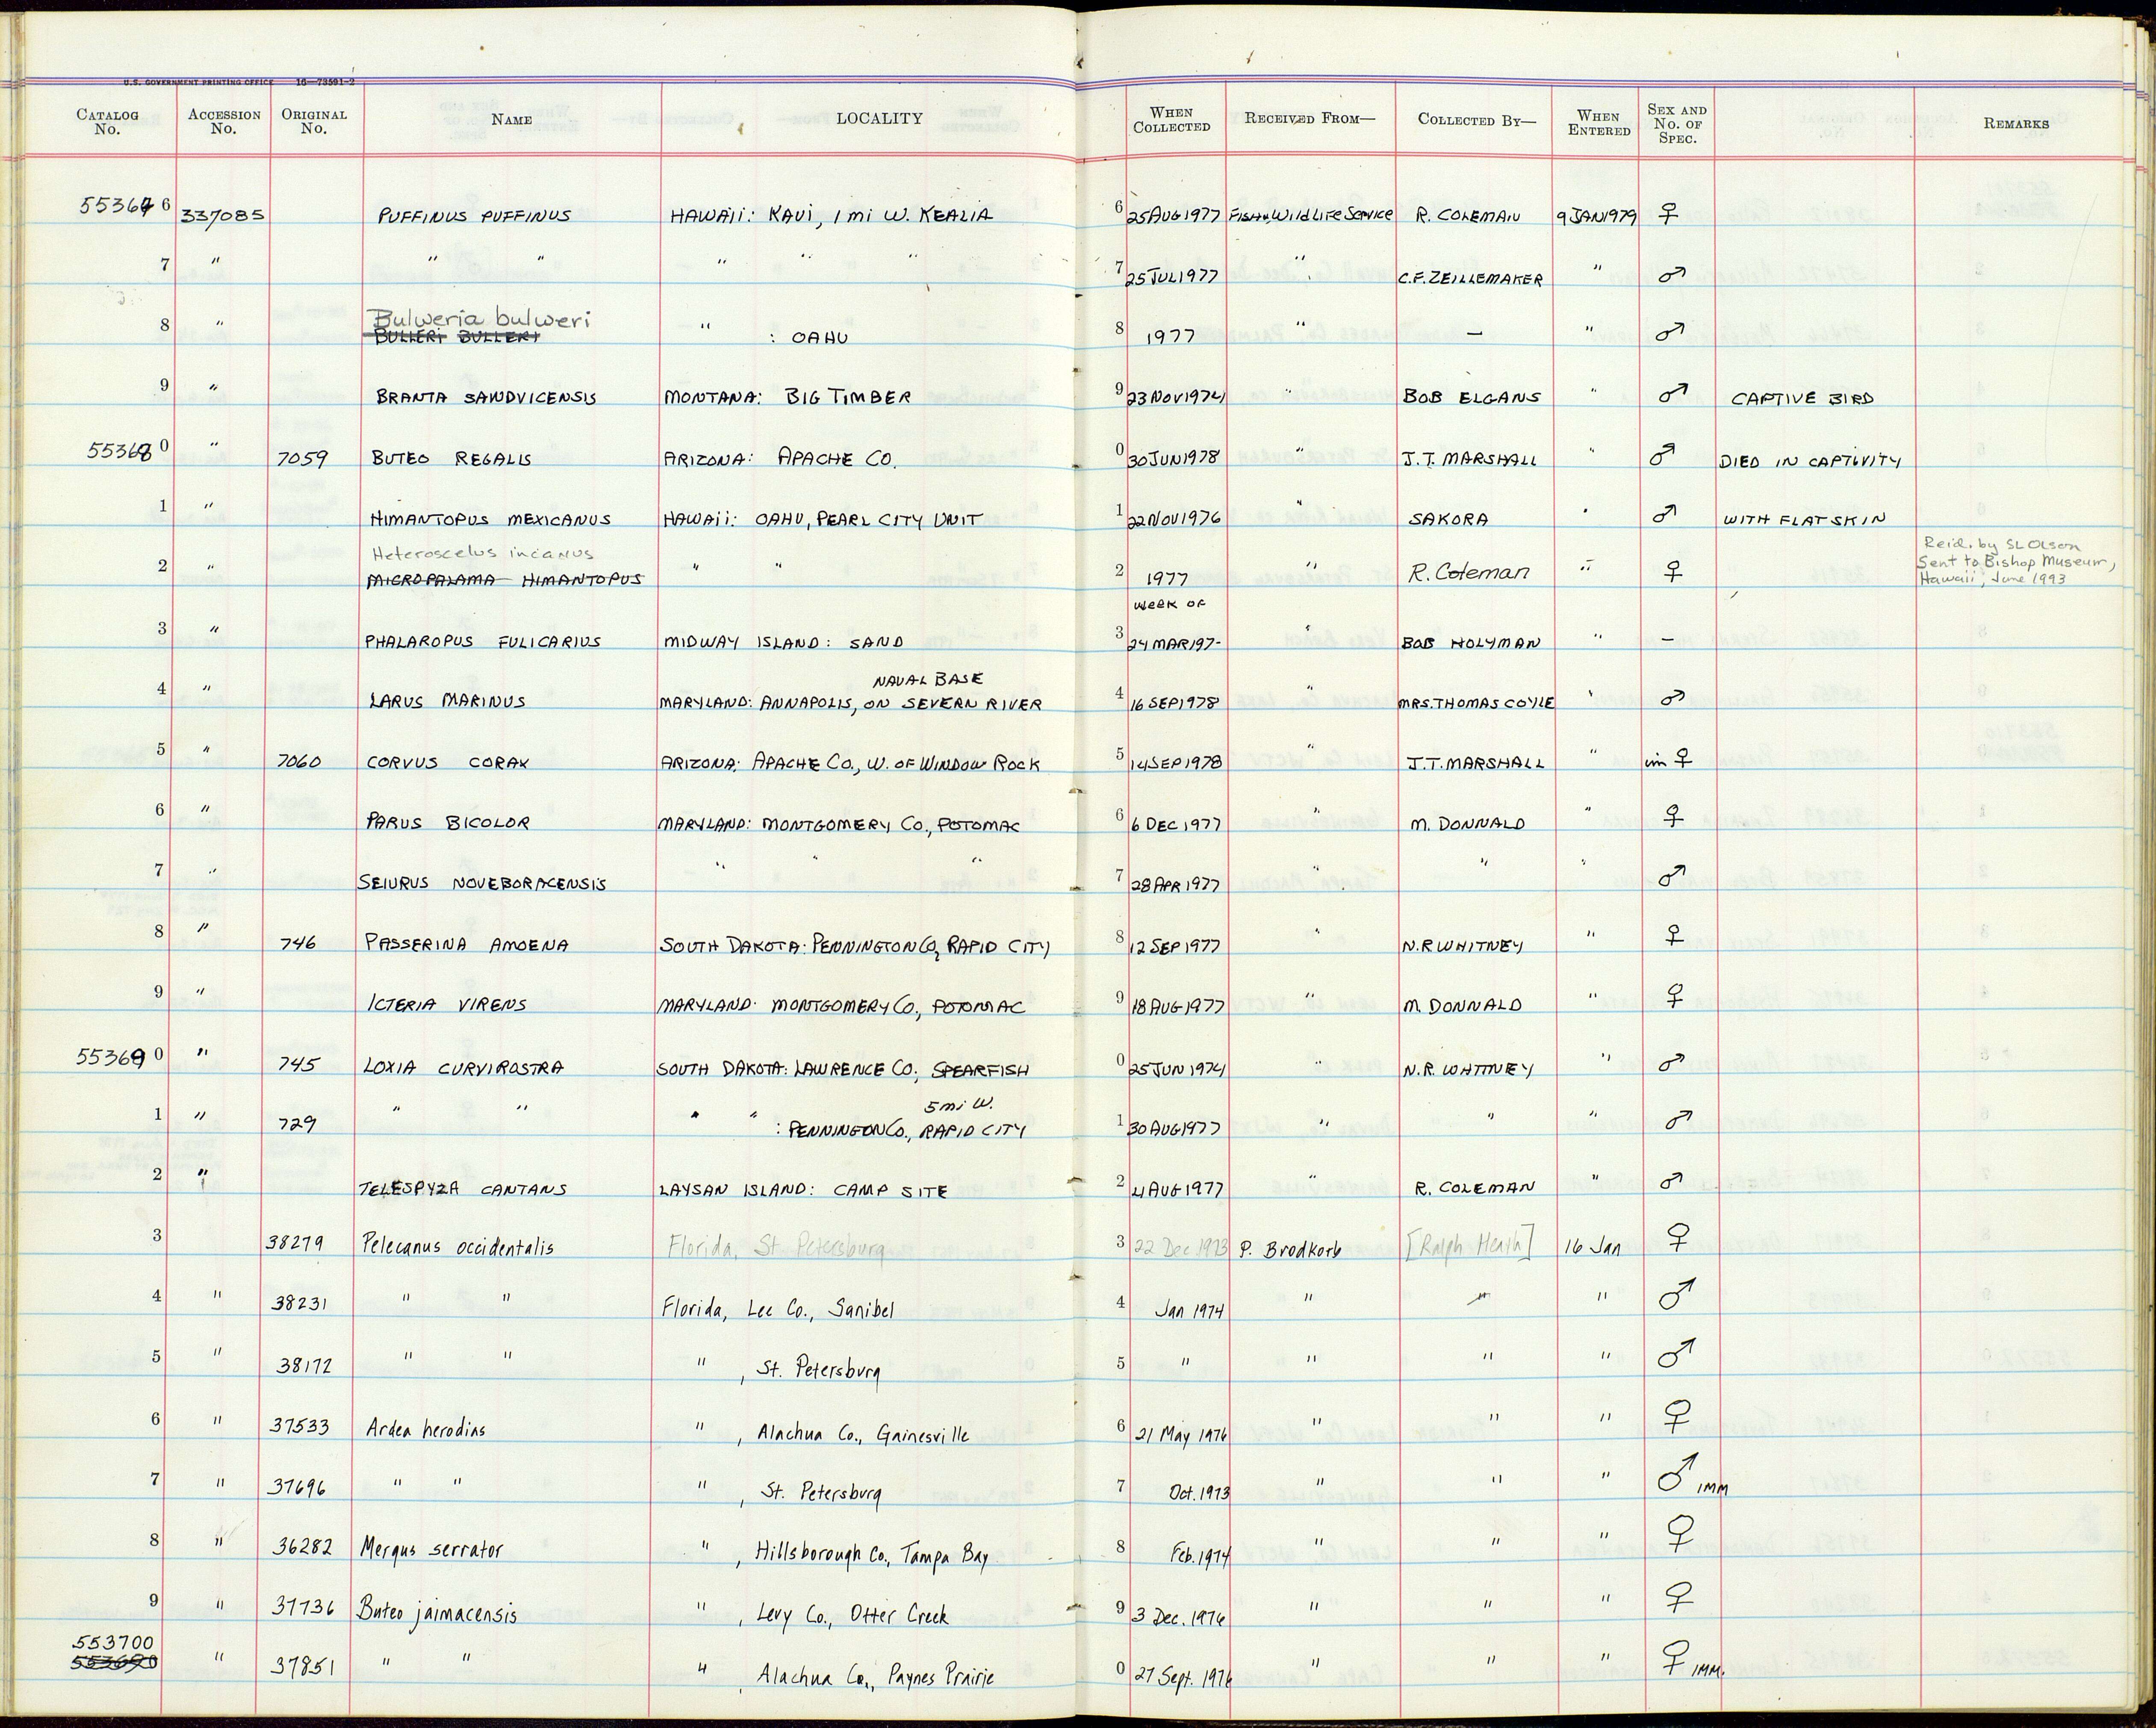 U.S. GOVERNMENT PRINTING OFFICE 16—73591-2
CATALOG No. ACCESSION No. ORIGINAL No. NAME LOCALITY WHEN COLLECTED RECEIVED FROM— COLLECTED BY— WHEN ENTERED SEX AND No. OF SPEC. REMARKS
55367 6 337085 PUFFINUS PUFFINUS HAWAII: KAUI, 1 mi W. KEALIA 6 25 AUG 1977 FISH & WILDLIFE SERVICE R. COLEMAN 9 JAN 1979 ♀
7 " " " " " " 7 25 JUL 1977 " C.F. ZEILLEMAKER " ♂
Bulweria bulweri
8 " BULLERI BULLERI " : OAHU 8 1977 " — " ♂
9 " BRANTA SANDVICENSIS MONTANA: BIG TIMBER 9 23 NOV 1974 " BOB ELGANS " ♂ CAPTIVE BIRD
55368 0 " 7059 BUTEO REGALIS ARIZONA: APACHE CO. 0 30 JUN 1978 " J.T. MARSHALL " ♂ DIED IN CAPTIVITY
1 " HIMANTOPUS MEXICANUS HAWAII: OAHU, PEARL CITY UNIT 1 22 NOV 1976 " SAKORA " ♂ WITH FLAT SKIN
Heteroscelus incanus Reid. by SL Olson
2 " MICROPALAMA HIMANTOPUS " " 2 1977 " R. Coleman " ♀ Sent to Bishop Museum,
Hawaii, June 1993
week of
3 " PHALAROPUS FULICARIUS MIDWAY ISLAND: SAND 3 24 MAR 197- " BOB HOLYMAN " —
NAVAL BASE
4 " LARUS MARINUS MARYLAND: ANNAPOLIS, ON SEVERN RIVER 4 16 SEP 1978 MRS. THOMAS COYLE " ♂
5 " 7060 CORVUS CORAX ARIZONA: APACHE CO., W. OF WINDOW ROCK 5 14 SEP 1978 " J.T. MARSHALL " im ♀
6 " PARUS BICOLOR MARYLAND: MONTGOMERY CO., POTOMAC 6 6 DEC 1977 " M. DONNALD " ♀
7 " SEIURUS NOVEBORACENSIS " " " 7 28 APR 1977 " " " ♂
8 " 746 PASSERINA AMOENA SOUTH DAKOTA: PENNINGTON CO, RAPID CITY 8 12 SEP 1977 " N.R WHITNEY " ♀
9 " ICTERIA VIRENS MARYLAND: MONTGOMERY CO., POTOMAC 9 18 AUG 1977 " M. DONNALD " ♀
55369 0 " 745 LOXIA CURVIROSTRA SOUTH DAKOTA: LAWRENCE CO; SPEARFISH 0 25 JUN 1974 " N.R. WHITNEY " ♂
5 mi W.
1 " 729 " " " " : PENNINGTON CO., RAPID CITY 1 30 AUG 1977 " " " ♂
2 " TELESPYZA CANTANS LAYSAN ISLAND: CAMP SITE 2 4 AUG 1977 " R. COLEMAN " ♂
3 38279 Pelecanus occidentalis Florida, St Petersburg 3 22 Dec 1973 P. Brodkorb [Ralph Heath] 16 Jan ♀
4 " 38231 " " Florida, Lee Co., Sanibel 4 Jan 1974 " " " ♂
5 " 38172 " " " , St. Petersburg 5 " " " " ♂
6 " 37533 Ardea herodias " , Alachua Co., Gainesville 6 21 May 1976 " " " ♀
7 " 37696 " " " , St. Petersburg 7 Oct. 1973 " " " ♂ IMM
8 " 36282 Mergus serrator " , Hillsborough Co., Tampa Bay 8 Feb. 1974 " " " ♀
9 " 37736 Buteo jaimacensis " , Levy Co., Otter Creek 9 3 Dec. 1976 " " " ♀
553700
553690 " 37851 " " " , Alachua Co., Paynes Prairie 0 27 Sept. 1976 " " " ♀ IMM.